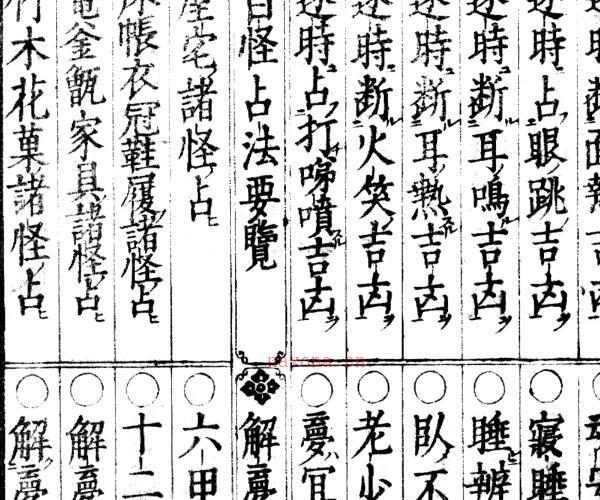 時占眼跳吉凶
時断耳鳴吉凶
時断耳熱吉凶
時断火笑吉凶
時占打嚔噴吉凶
百怪占法要覽
宅諸怪占
帳衣冠鞋履諸怪占
釜甑家具諸怪占
竹木花菓諸怪占
○寢睡
○睡辨
○臥不
○老少
○夢宜
解夢
○六甲
○十二
○解夢
○解夢
nayona.cn